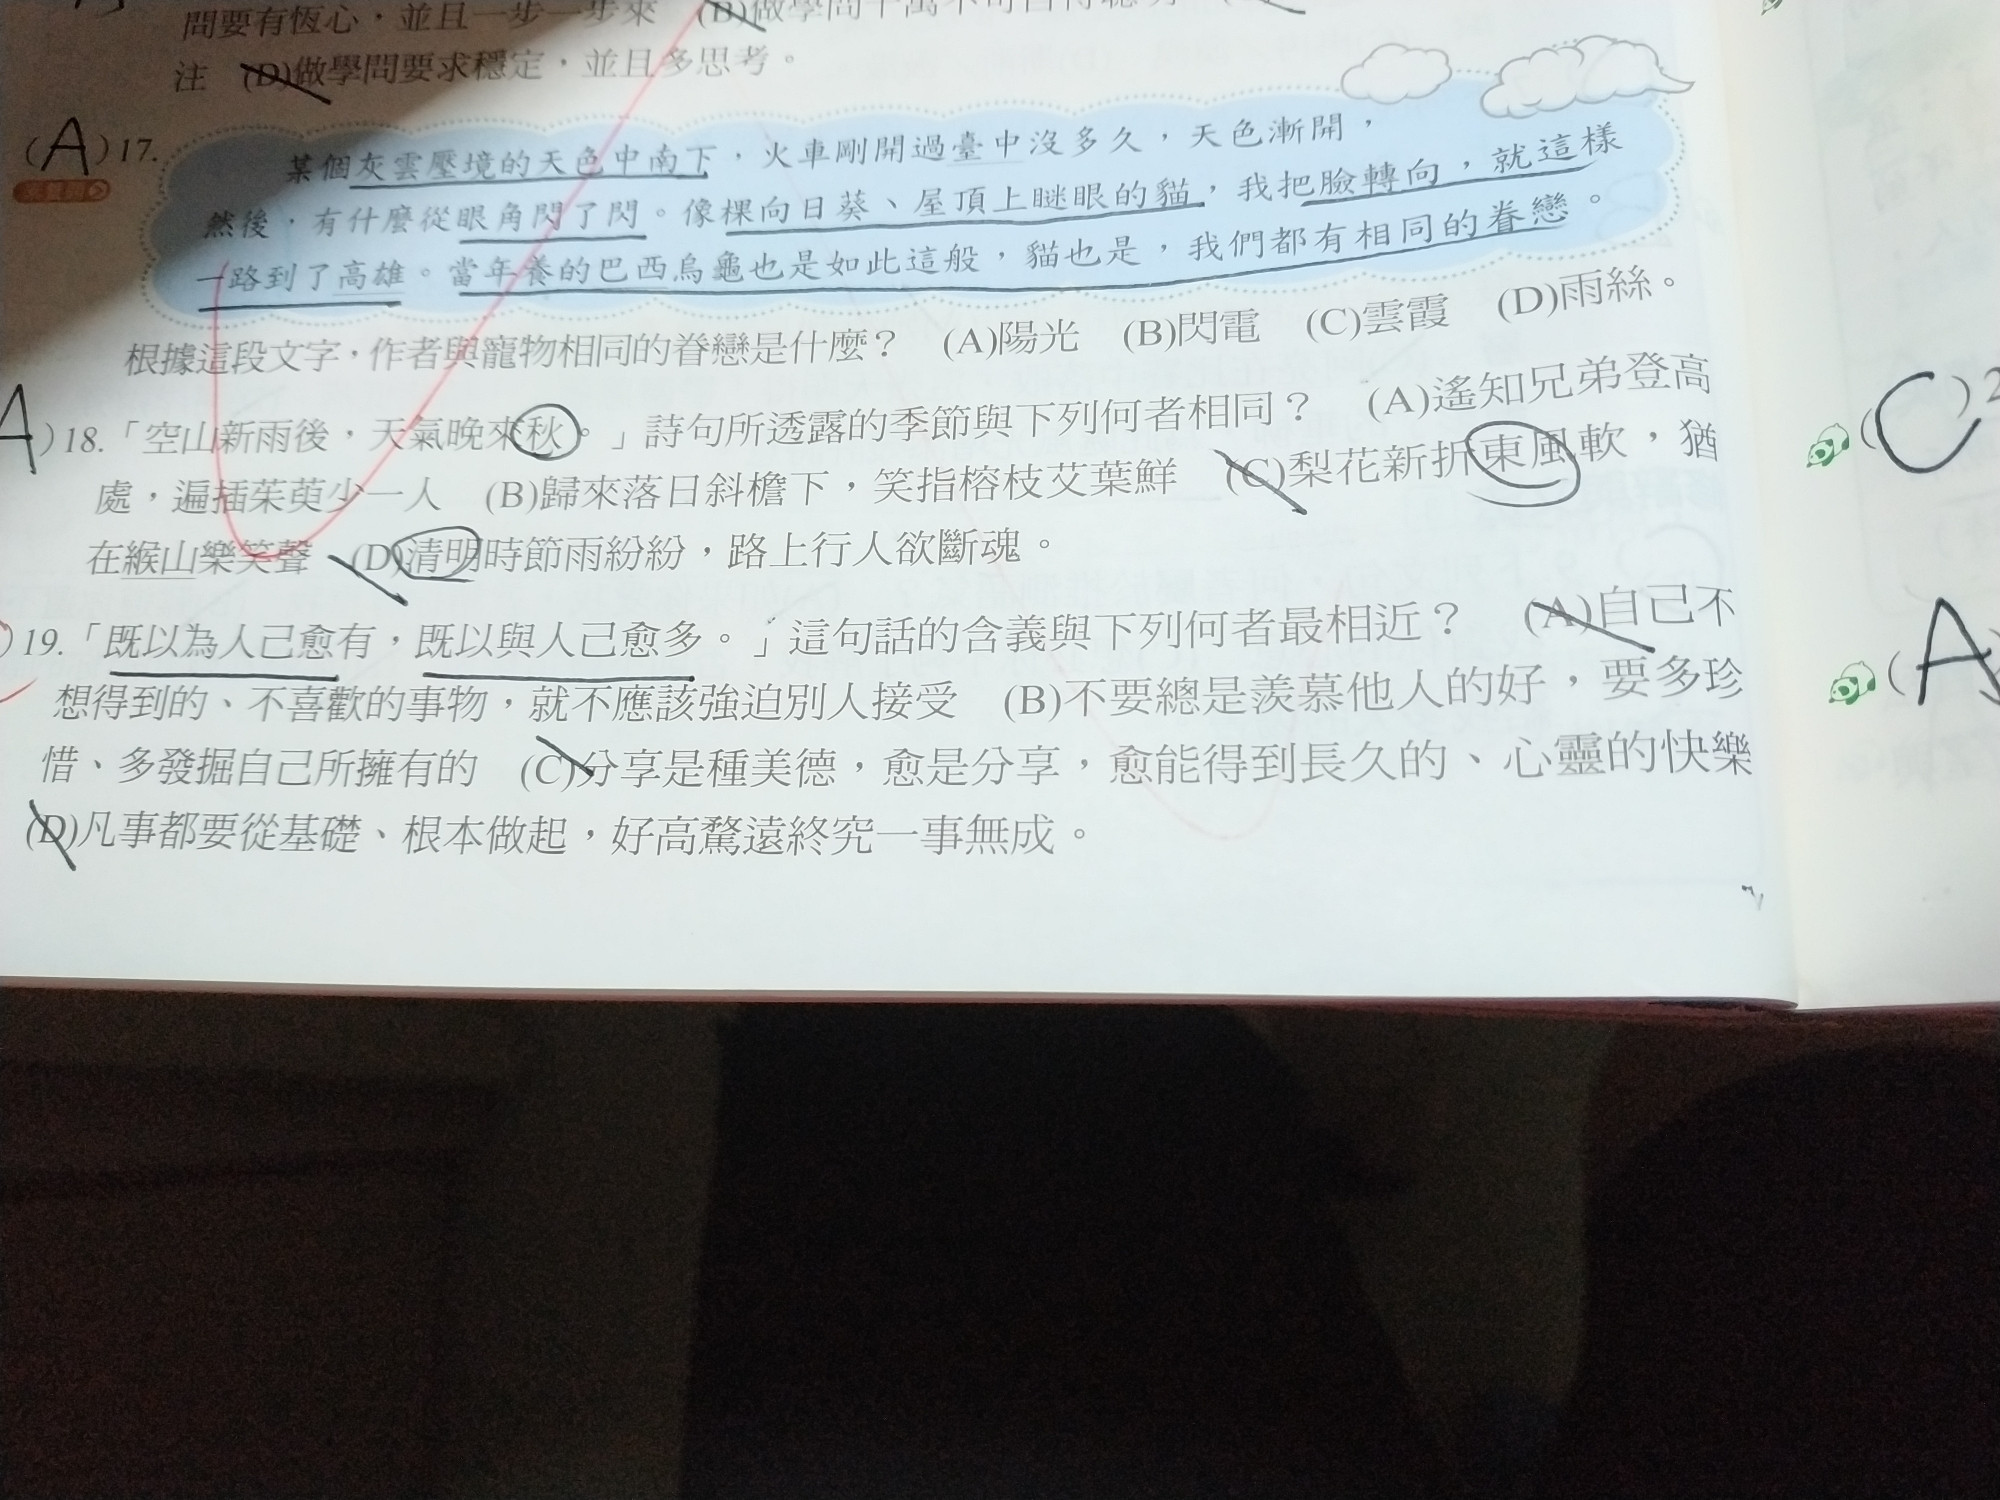 問要有恆心，並且一步一步來 (B)做學問千萬不可自恃聰明
注 (D)做學問要求穩定，並且多思考。
(A) 17.
某個灰雲壓境的天色中南下，火車剛開過臺中沒多久，天色漸開，
然後，有什麼從眼角閃了閃。像棵向日葵、屋頂上瞇眼的貓，我把臉轉向，就這樣
一路到了高雄。當年養的巴西烏龜也是如此這般，貓也是，我們都有相同的眷戀。
根據這段文字，作者與寵物相同的眷戀是什麼？ (A)陽光 (B)閃電 (C)雲霞 (D)雨絲。
A) 18.「空山新雨後，天氣晚來秋。」詩句所透露的季節與下列何者相同？ (A)遙知兄弟登高
處，遍插茱萸少一人 (B)歸來落日斜檐下，笑指榕枝艾葉鮮 (C)梨花新折東風軟，猶
在緱山樂笑聲 (D)清明時節雨紛紛，路上行人欲斷魂。
) 19.「既以為人己愈有，既以與人己愈多。」這句話的含義與下列何者最相近？ (A)自己不
想得到的、不喜歡的事物，就不應該強迫別人接受 (B)不要總是羨慕他人的好，要多珍
惜、多發掘自己所擁有的 (C)分享是種美德，愈是分享，愈能得到長久的、心靈的快樂
(D)凡事都要從基礎、根本做起，好高騖遠終究一事無成。
(C) 2
(A)